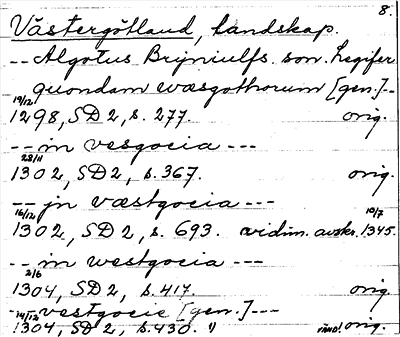 8.
Västergötland, landskap.
-- Algotus Brijniulfs. son. Legifer
quondam wæsgothorum [gen.]--
19/12
1298, SD 2, s. 277. orig.
-- in vesgocia ---
28/11
1302, SD 2, s. 367. orig.
-- jn væstgocia ---
16/12 10/7
1302, SD 2, s. 693. vidim. avskr. 1345.
-- in westgocia ---
2/6
1304, SD 2, s. 417. orig.
-- vestgocie [gen.]---
14/12
1304, SD 2, s. 430. " orig.
vänd!